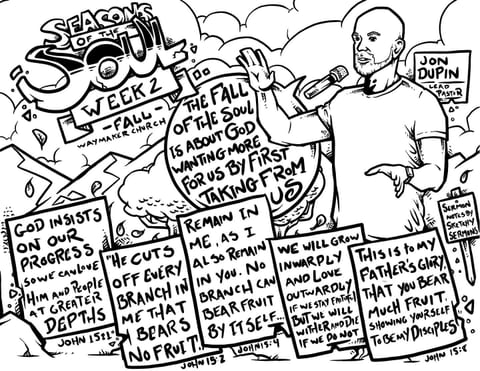 SEASONS
OF THE
SOUL
WEEK 2
- FALL -
WAYMAKER CHURCH
JON
DUPIN
LEAD
PASTOR
THE FALL
OF THE SOUL
IS ABOUT GOD
WANTING MORE
FOR US BY FIRST
TAKING FROM
US
SERMON
NOTES BY
SKETCHY
SERMONS
GOD INSISTS
ON OUR
PROGRESS
SO WE CAN LOVE
HIM AND PEOPLE
AT GREATER
DEPTHS
"HE CUTS
OFF EVERY
BRANCH IN
ME THAT
BEARS
NO FRUIT."
JOHN 15:2
REMAIN IN
ME, AS I
ALSO REMAIN
IN YOU. NO
BRANCH CAN
BEAR FRUIT
BY ITSELF...
JOHN 15:4
WE WILL GROW
INWARDLY
AND LOVE
OUTWARDLY
BUT WE WILL
WITHER AND DIE
IF WE DO NOT
THIS IS TO MY
FATHER'S GLORY,
THAT YOU BEAR
MUCH FRUIT,
SHOWING YOURSELF
TO BE MY DISCIPLES